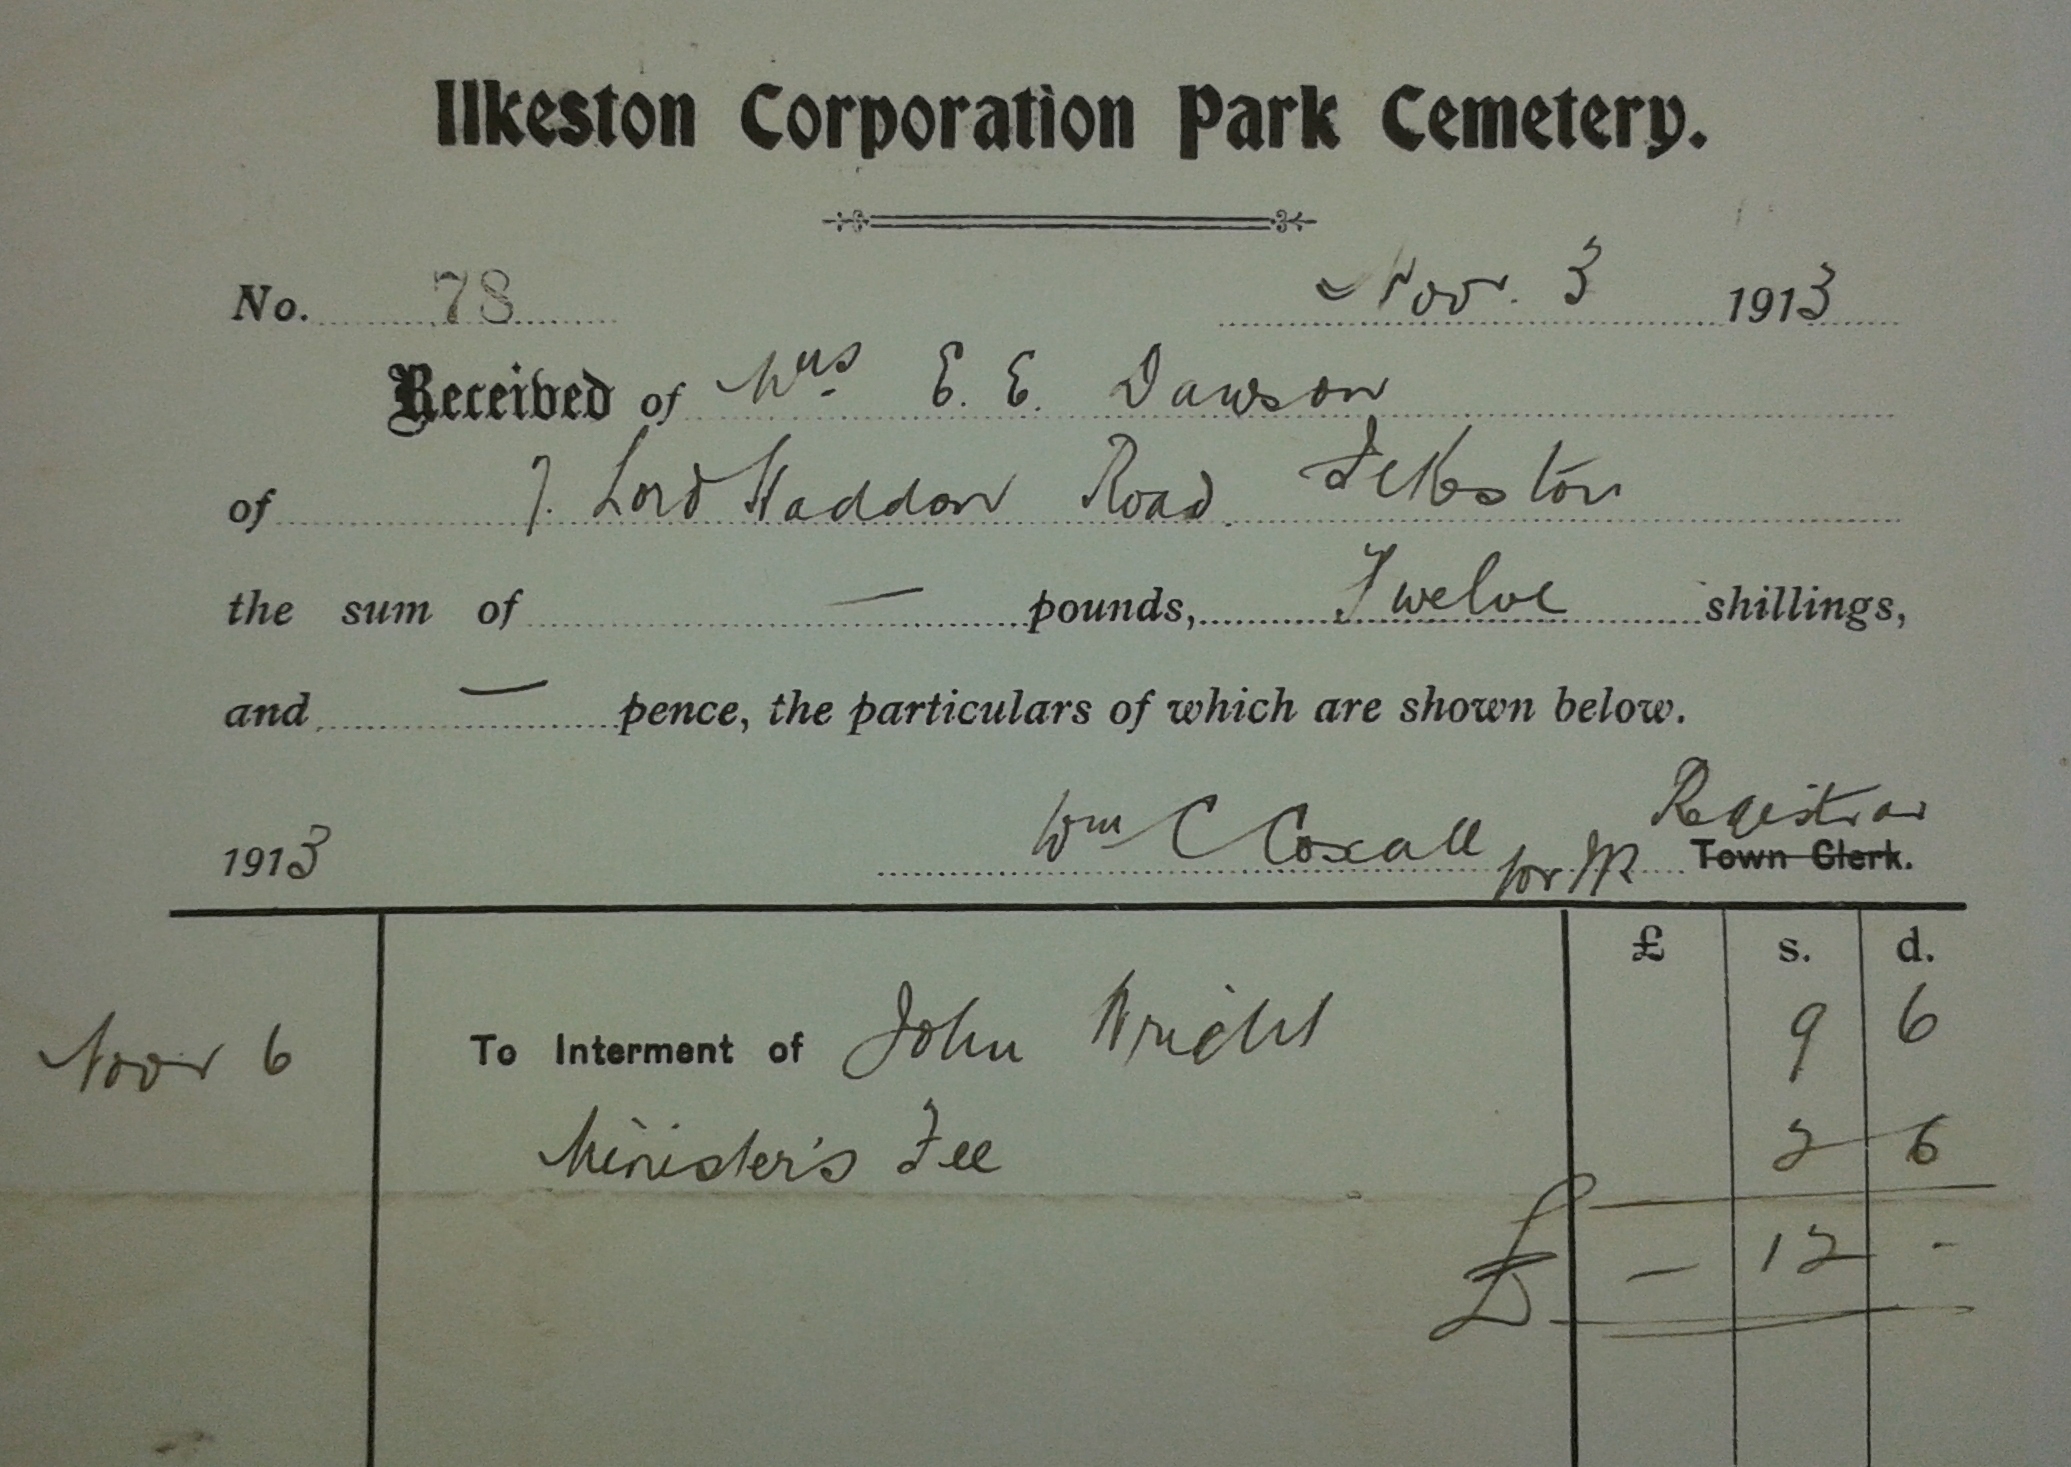 Ilkeston Corporation Park Cemetery.
No. 78 Nov. 3 1913
Received of Mrs E. E. Dawson
of 7. Lord Haddon Road. Ilkeston
the sum of — pounds, Twelve shillings,
and — pence, the particulars of which are shown below.
Registrar
1913 Wm C Coxall for Town Clerk.
£ s. d.
Nov 6 To Interment of John Wright 9 6
Minister's Fee 2 6
£ — 12 -